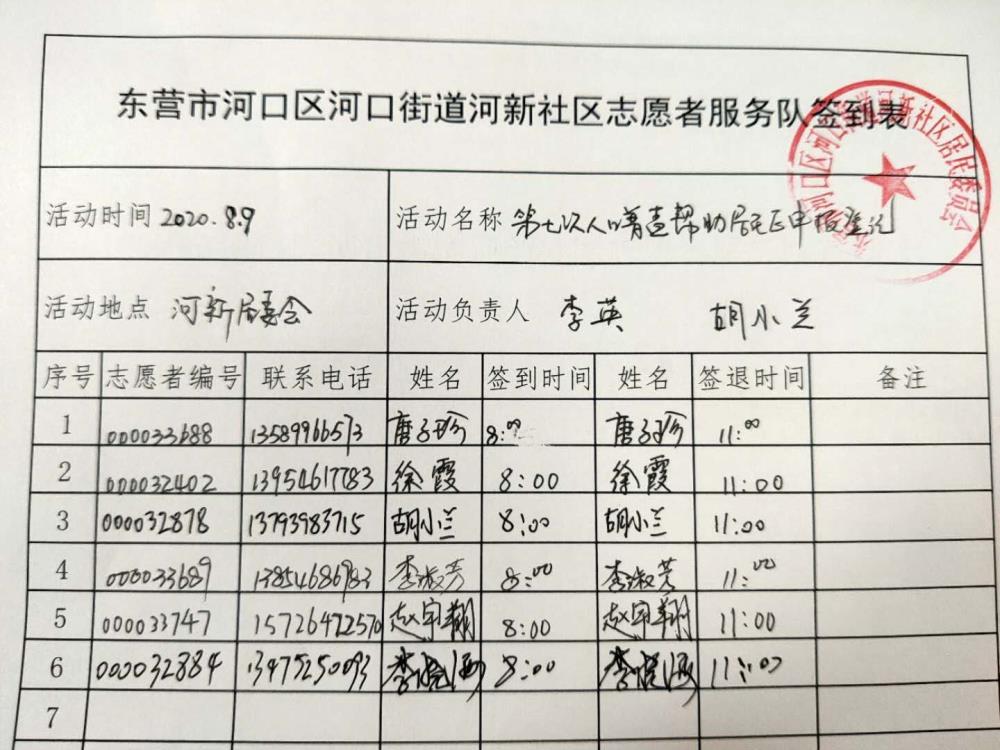 东营市河口区河口街道河新社区志愿者服务队签到表
活动时间 2020.8.9 活动名称 第七次人口普查帮助居民正申报登记
活动地点 河新居委会 活动负责人 李英 胡小兰
序号 志愿者编号 联系电话 姓名 签到时间 姓名 签退时间 备注
1 000033688 13589966573 唐子珍 8:00 唐子珍 11:00
2 000032402 13954617783 徐霞 8:00 徐霞 11:00
3 000032878 13793983715 胡小兰 8:00 胡小兰 11:00
4 000033689 13854686983 李淑芳 8:00 李淑芳 11:00
5 000033747 15726472570 赵宇翔 8:00 赵宇翔 11:00
6 000032884 13475250093 李 8:00 李 11:00
7
河口区河口街道河新社区居民委员会